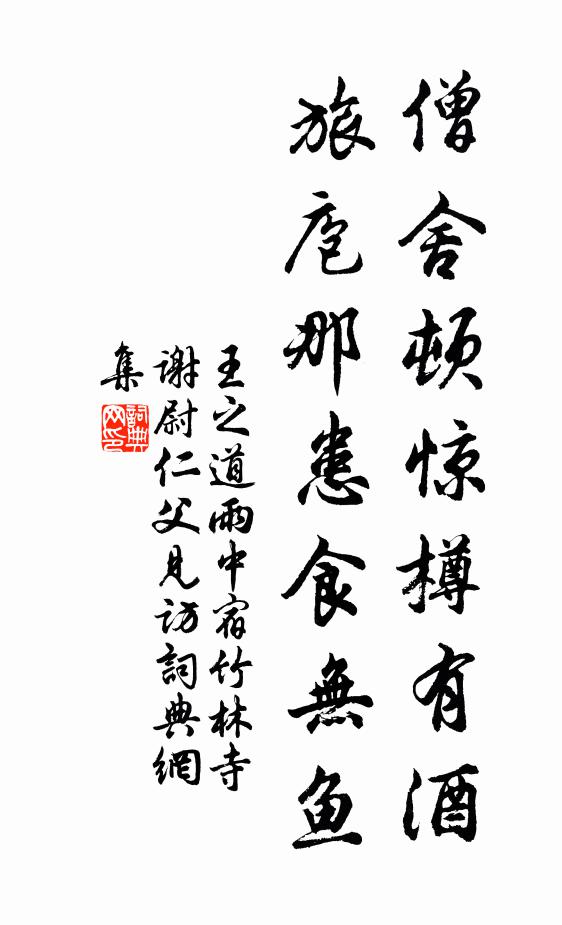 僧舍顿惊樽有酒
旅庖那患食無鱼
王之道雨中宿竹林寺
谢尉仁父見访詞典網
集
詞典網印